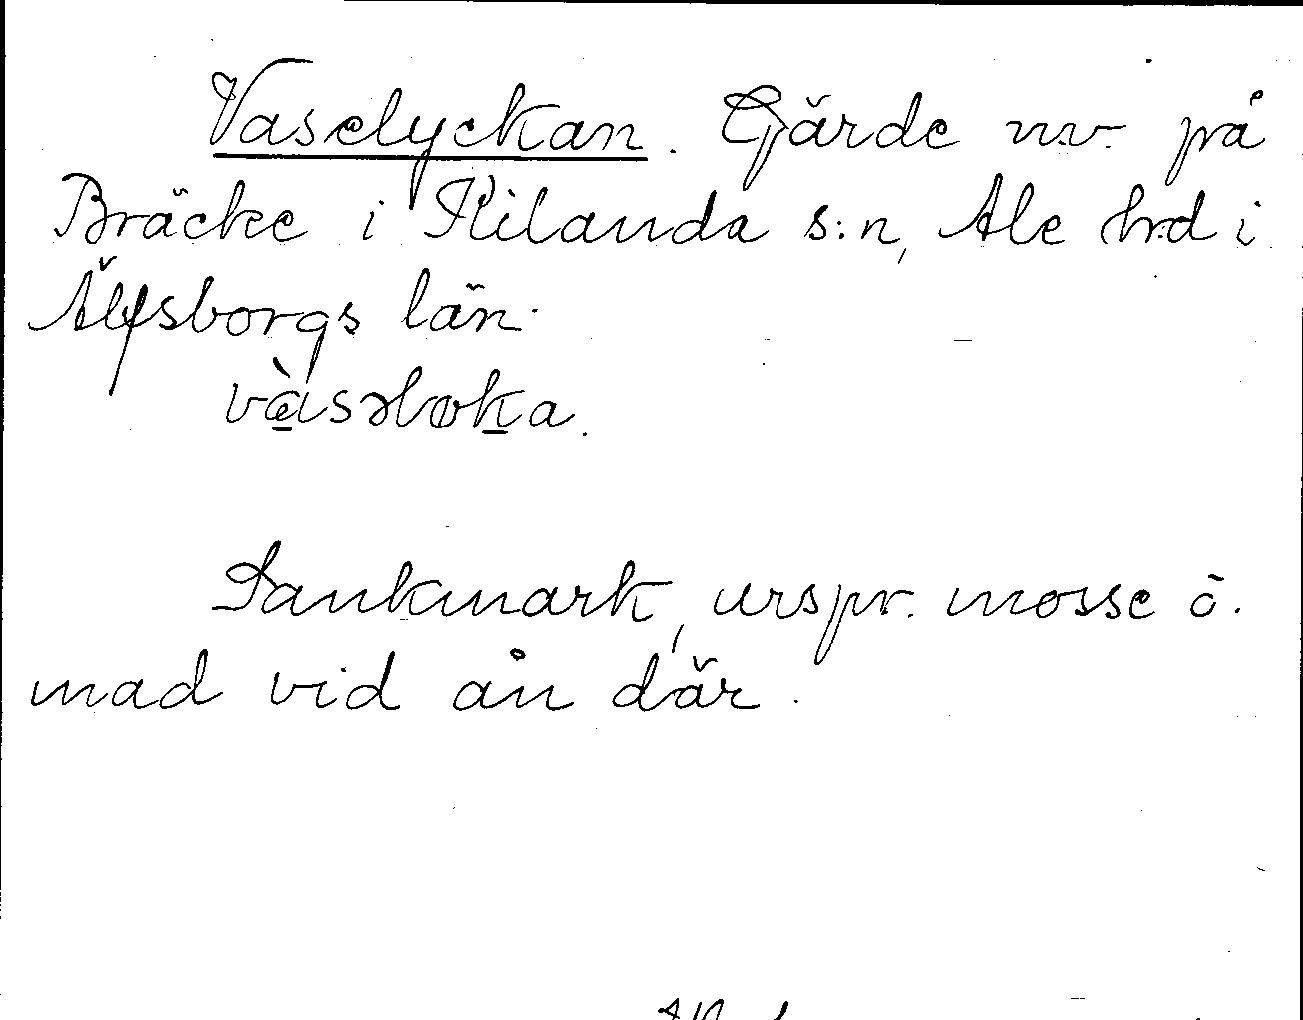 Vaselyckan. Gärde nv. på
Bräcke i Kilanda s:n, Ale hrd i
Älfsborgs län.
vàsəlɵka.
Sankmark, urspr. mosse o.
mad vid ån där.